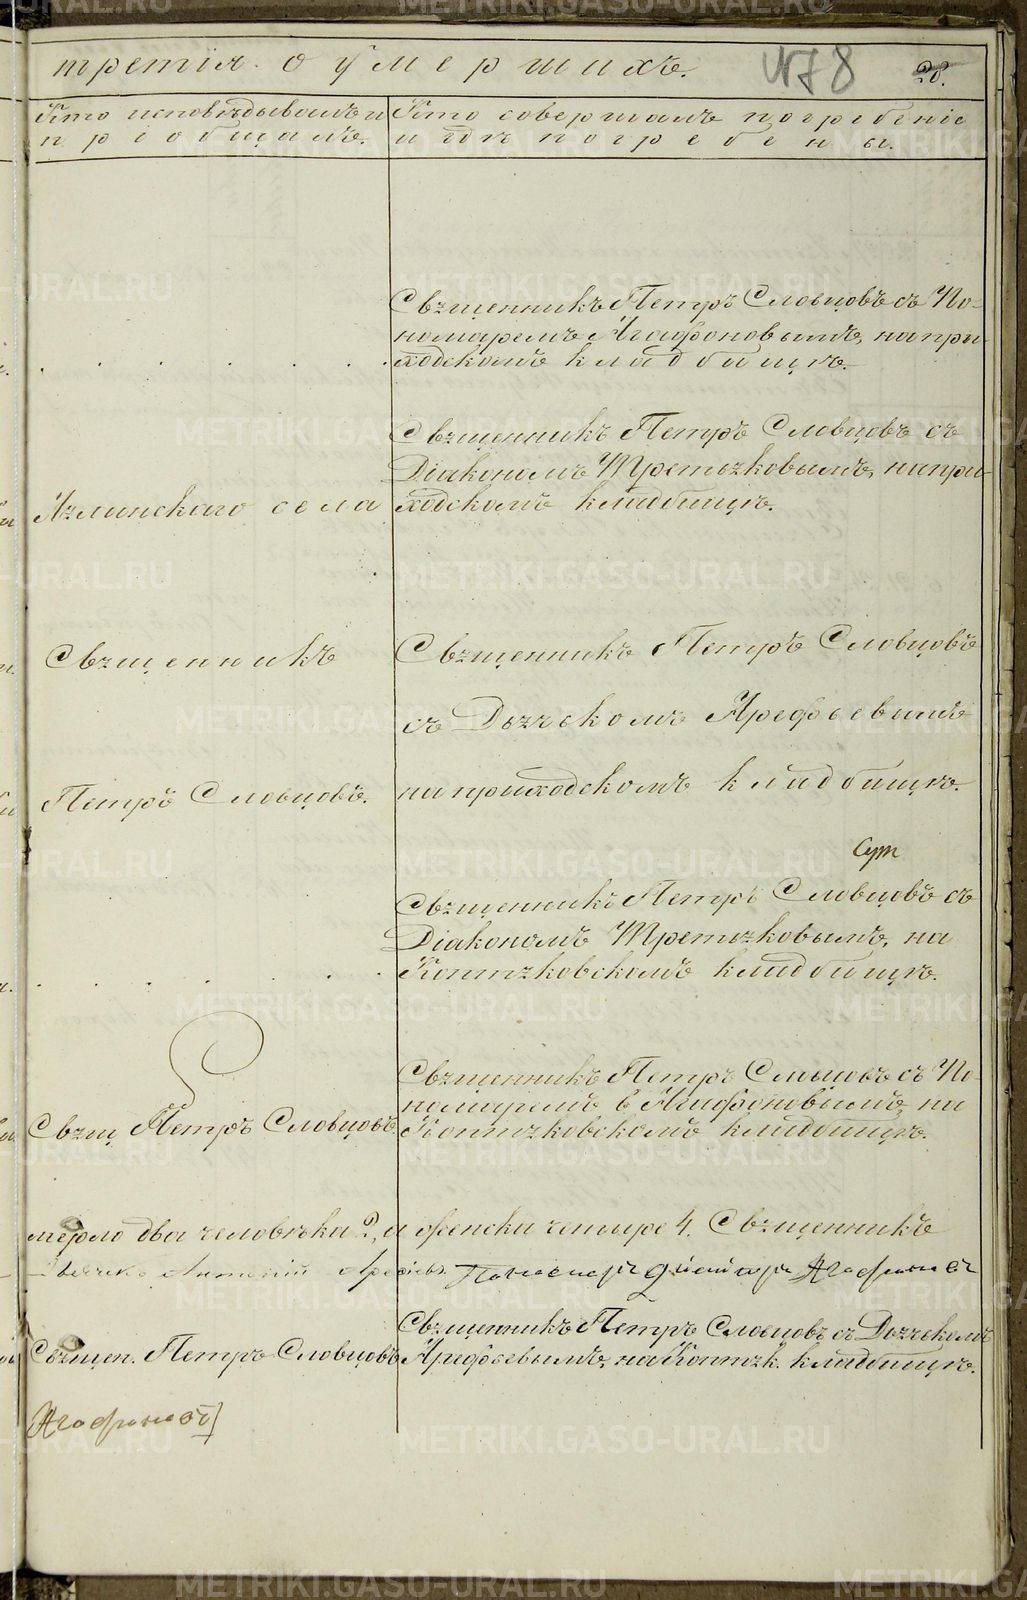 третія о умершихъ.
78
28.
Кто исповѣдывалъ и
пріобщалъ.
Кто совершалъ погребеніе
и гдѣ погребены.
Священникъ Петръ Словцовъ съ По-
номаремъ Агафоновымъ, на при-
ходскомъ кладбищѣ.
Священникъ Петръ Словцовъ съ
Діакономъ Третьяковымъ, на при-
Яглинскаго села
ходскомъ кладбищѣ.
Священникъ
Священникъ Петръ Словцовъ
съ Дьячкомъ Арефьевымъ
Петръ Словцовъ.
на приходскомъ кладбищѣ.
Священникъ Петръ Словцовъ съ
Діакономъ Третьяковымъ, на
Коптяковскомъ кладбищѣ.
Священникъ Петръ Словцовъ съ По-
номаремъ Агафоновымъ, на
Свящ Петръ Словцовъ.
Коптяковскомъ кладбищѣ.
мерло два человѣка 2, а женска четыре 4. Священникъ
Дьячекъ Антоній Арефьевъ Пономарь Агафоновъ
Священникъ Петръ Словцовъ съ Дьячкомъ
Священ. Петръ Словцовъ
Арефьевымъ, на Коптяк. кладбищѣ.
Агафоновъ
METRIKI.GASO-URAL.RU